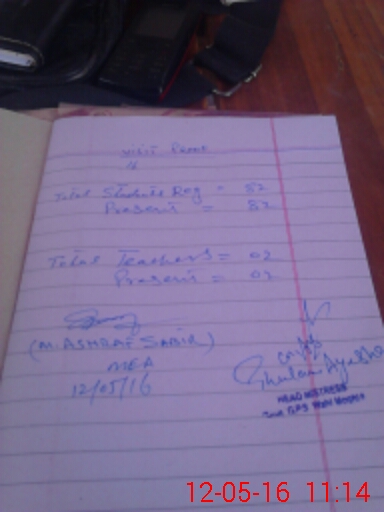 Visit Proof
Total Students Reg = 82
Present = 82
Total Teachers = 02
Present = 02
(M. ASHRAF SABIR)
MEA
12/05/16
Ghulam Ayesha
HEAD MISTRESS
GPS
12-05-16 11:14